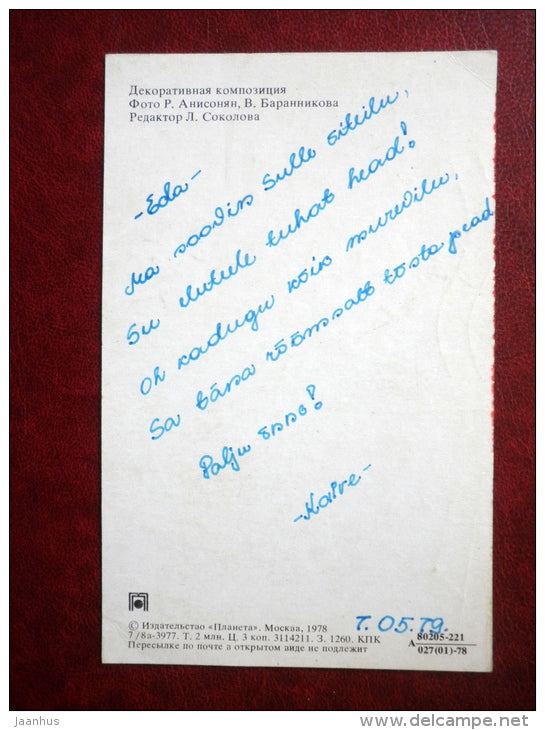 Декоративная композиция
Фото Р. Анисонян, В. Баранникова
Редактор Л. Соколова
-Eda-
Ma soovin Sulle
Su elutule tuhat head!
Oh kadugu kõik
Sa täna rõõmsalt tõsta pead
Palju õnne!
-Kaire-
© Издательство «Планета». Москва, 1978
7/8а-3977. Т. 2 млн. Ц. 3 коп. 3114211. З. 1260. КПК
Пересылке по почте в открытом виде не подлежит
7. 05. 79.
А 80205-221
027(01)-78
jaanhus
www.delcampe.net